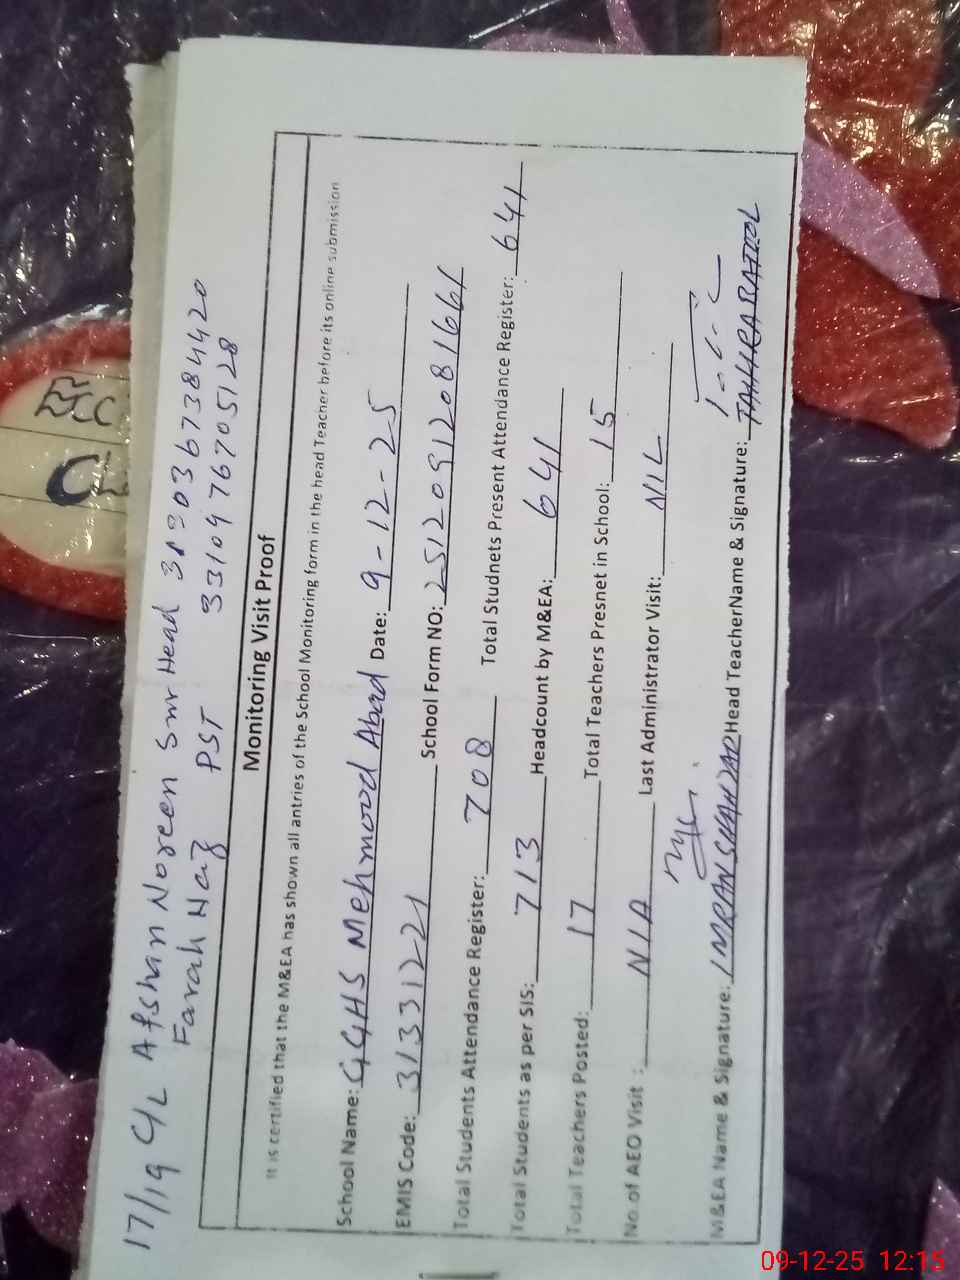 17/19 C/L Afshan Noreen Snr Head
Farah Naz PST 3310476705128
Monitoring Visit Proof
It is certified that the M&EA has shown all antries of the School Monitoring form in the head Teacher before its online submission
School Name: GGHS Mehmood Abad Date: 9-12-25
EMIS Code: 31331221 School Form NO: 25120912081661
Total Students Attendance Register: 708 Total Studnets Present Attendance Register: 641
Total Students as per SIS: 713 Headcount by M&EA: 641
Total Teachers Posted: 17 Total Teachers Presnet in School: 15
No.of AEO Visit : N/A Last Administrator Visit: NIL
M&EA Name & Signature: IMRAN SHAHZAD Head TeacherName & Signature: TAHIRA BATOOL
ECC
09-12-25 12:15